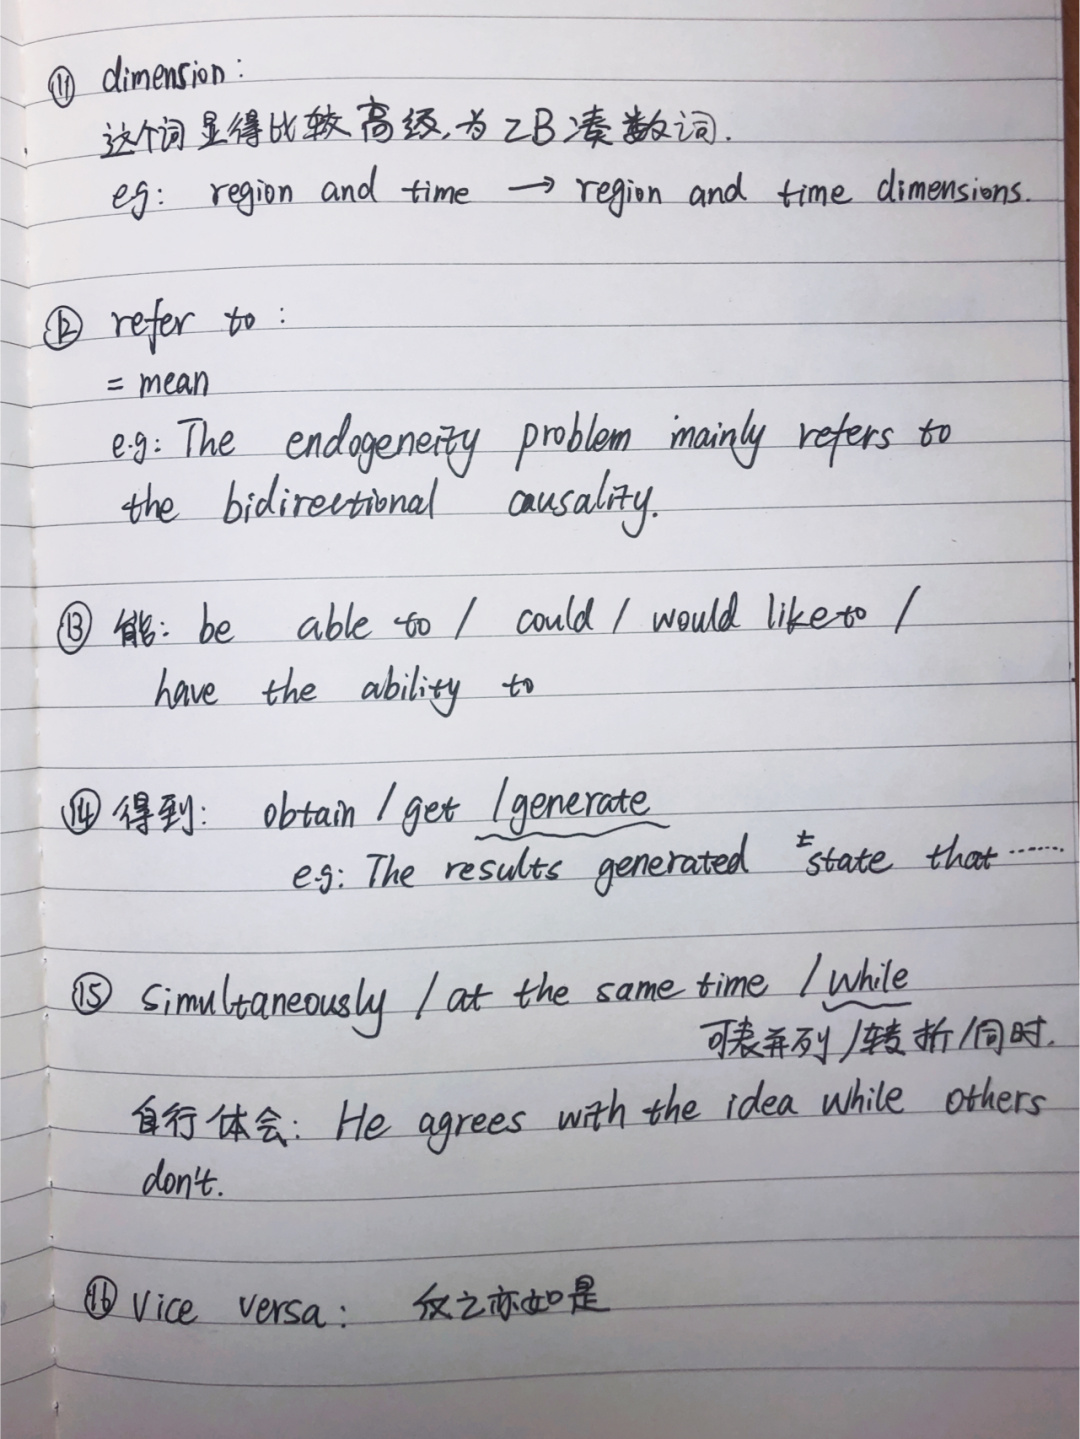 ⑪ dimension:
这个词显得比较高级,为ZB凑数词.
eg: region and time → region and time dimensions.
⑫ refer to:
= mean
e.g: The endogeneity problem mainly refers to
the bidirectional causality.
⑬ 能: be able to / could / would like to /
have the ability to
⑭ 得到: obtain / get / generate
e.g: The results generated state that ······
⑮ Simultaneously / at the same time / while
可表并列/转折/同时.
自行体会: He agrees with the idea while others
don't.
⑯ Vice versa: 反之亦如是